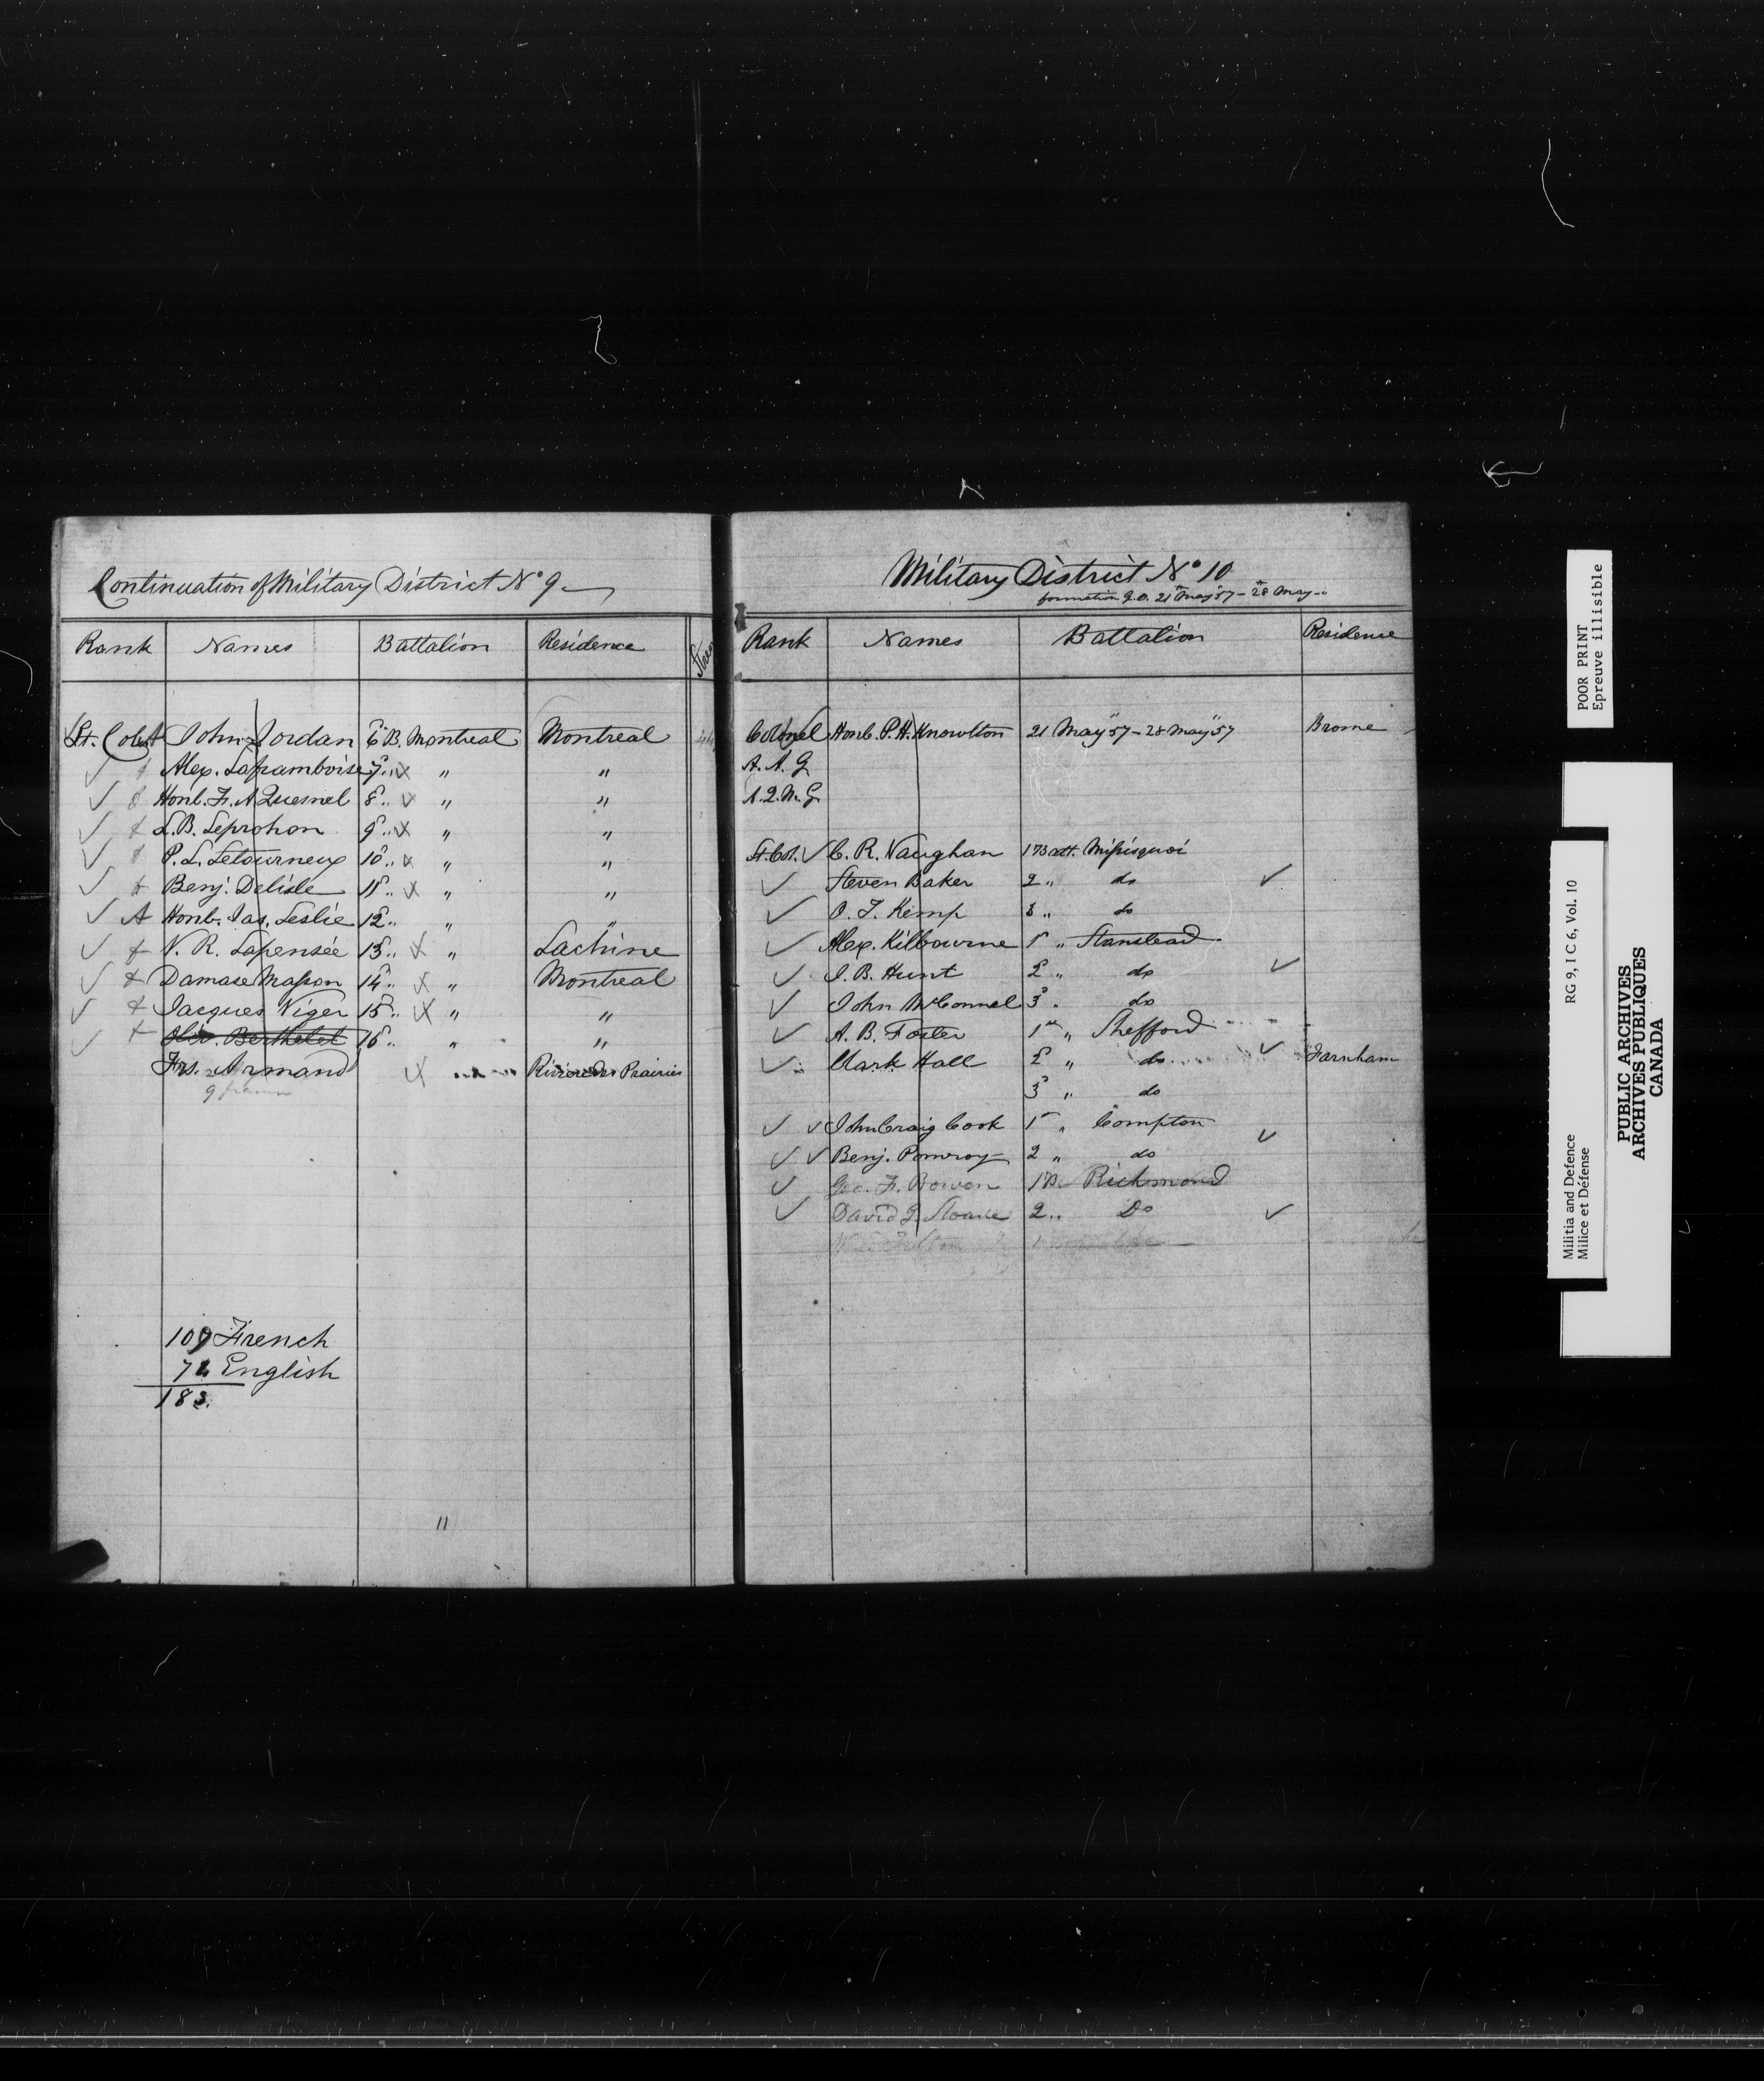 Continuation of Military District No 9
Rank Names Battalion Residence
Lt. Col John Jordan 6 B. Montreal Montreal
Alex. Laframboise 7 " " "
Honl. F. A Quesnel 8 " " "
L. B. Leprohon 9 " " "
P. L. Letourneux 10 " " "
Benj. Delisle 11 " " "
Honb. Jas. Leslie 12 " " "
V. R. Lapensée 13 " " Lachine
Damase Masson 14 " " Montreal
Jacques Viger 15 " " "
Oliv. Berthelet 16 " " "
Frs. Armand Riviere des Prairies
109 French
74 English
183
"
Military District No 10
formation G.O. 21st May 57 - 28th May
Rank Names Battalion Residence
Colonel Honb. P. H. Knowlton 21 May 57 - 28 May 57 Brome
A. A. G.
A. Q. M. G.
Lt. Col. C. R. Vaughan 1 Batt. Missisquoi
Steven Baker 2 " do
O. J. Kemp 3 " do
Alex. Kilbourne 1 " Stanstead
J. B. Hunt 2 " do
John McConnel 3 " do
A. B. Foster 1st " Shefford
Mark Hall 2 " do Farnham
3 " do
John Craig Cook 1 " Compton
Benj. Pomroy 2 " do
Geo. F. Bowen 1 B. Richmond
David Sloane 2 " Do
POOR PRINT
Epreuve illisible
Militia and Defence
Milice et Défense
RG 9, I C 6, Vol. 10
PUBLIC ARCHIVES
ARCHIVES PUBLIQUES
CANADA